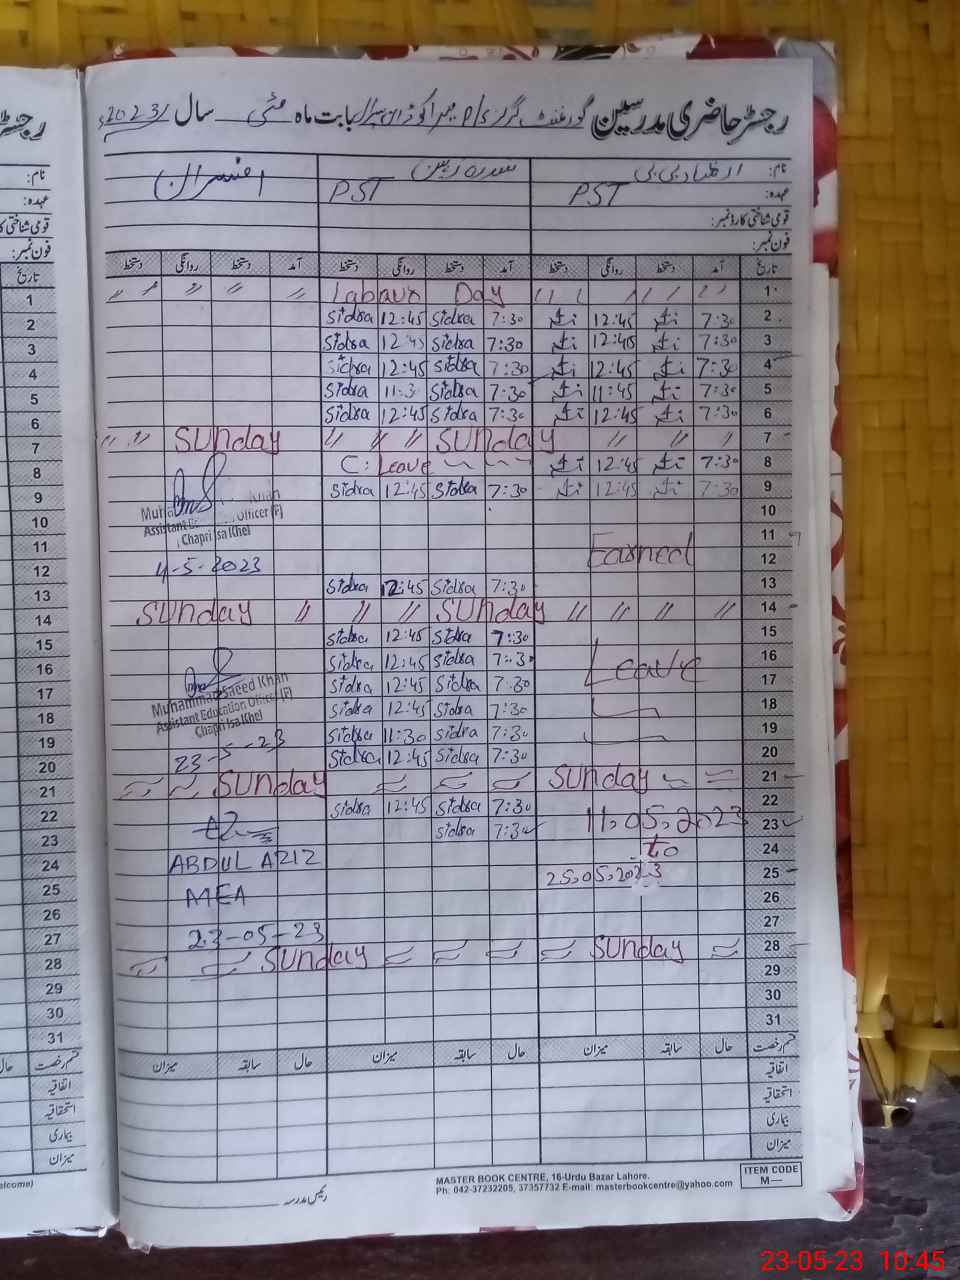 رجسٹر حاضری مدرسین گورنمنٹ گرلز P/S بابت ماہ مئی سال 2023ء
نام: ارشاد بی بی سدرہ زرین افسران
عہدہ: PST PST
قومی شناختی کارڈ نمبر:
فون نمبر:
تاریخ آمد دستخط روانگی دستخط آمد دستخط روانگی دستخط آمد دستخط روانگی دستخط
1 〃 〃 Labour Day 〃 〃
2 7:30 12:45 Sidra 12:45 Sidra 7:30
3 7:30 12:45 Sidra 12:45 Sidra 7:30
4 7:30 12:45 Sidra 12:45 Sidra 7:30
5 7:30 11:45 Sidra 11:30 Sidra 7:30
6 7:30 12:45 Sidra 12:45 Sidra 7:30
7 〃 〃 〃 Sunday 〃 〃 〃 Sunday 〃 〃
8 7:30 12:45 C: Leave
9 7:30 12:45 Sidra 12:45 Sidra 7:30
10
11 Earned
12
13 Sidra 12:45 Sidra 7:30
14 〃 〃 〃 〃 Sunday 〃 〃 〃 Sunday
15 Sidra 12:45 Sidra 7:30
16 Leave Sidra 12:45 Sidra 7:30
17 Sidra 12:45 Sidra 7:30
18 Sidra 12:45 Sidra 7:30
19 Sidra 11:30 Sidra 7:30
20 Sidra 12:45 Sidra 7:30
21 Sunday Sunday
22 Sidra 12:45 Sidra 7:30
23 11.05.2023 Sidra 7:30
24 to
25 25.05.2023
26
27
28 Sunday Sunday
29
30
31
Assistant Education Officer (F)
Chapri Isa Khel
4-5-2023
Muhammad Saeed Khan
Assistant Education Officer (F)
Chapri Isa Khel
23-5-23
ABDUL AZIZ
MEA
23-05-23
قسم رخصت حال سابقہ میزان حال سابقہ میزان حال سابقہ میزان
اتفاقیہ
استحقاقیہ
بیماری
میزان
رئیس مدرسہ
MASTER BOOK CENTRE, 16-Urdu Bazar Lahore.
Ph: 042-37232205, 37357732 E-mail: masterbookcentre@yahoo.com
ITEM CODE
M—
نام:
عہدہ:
فون نمبر:
تاریخ
1
2
3
4
5
6
7
8
9
10
11
12
13
14
15
16
17
18
19
20
21
22
23
24
25
26
27
28
29
30
31
قسم رخصت
اتفاقیہ
استحقاقیہ
بیماری
میزان
23-05-23 10:45